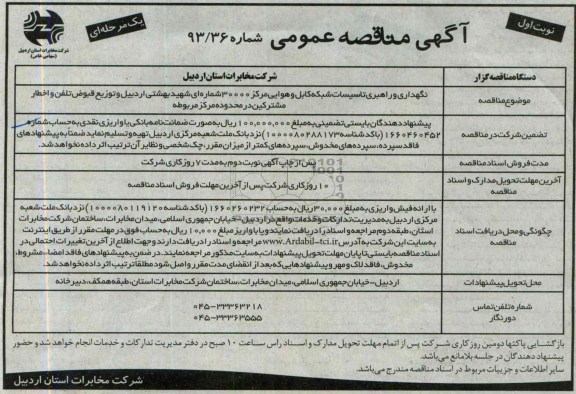 نوبت اول
آگهی مناقصه عمومی شماره ۹۳/۳۶
یک مرحله‌ای
شرکت مخابرات استان اردبیل
(سهامی خاص)
دستگاه مناقصه گزار
شرکت مخابرات استان اردبیل
موضوع مناقصه
نگهداری و راهبری تاسیسات شبکه کابل و هوایی مرکز ۳۰۰۰۰ شماره‌ای شهید بهشتی اردبیل و توزیع قبوض تلفن و اخطار
مشترکین در محدوده مرکز مربوطه
تضمین شرکت در مناقصه
پیشنهاد دهندگان بایستی تضمینی به مبلغ ۱۰۰,۰۰۰,۰۰۰ ریال به صورت ضمانت نامه بانکی یا واریزی نقدی به حساب شماره
۱۶۶۰۴۶۰۴۵۲ (با کد شناسه ۱۰۰۰۰۸۰۴۸۸۱۷۳) نزد بانک ملت شعبه مرکزی اردبیل تهیه و تسلیم نماید ضمناً به پیشنهادهای
فاقد سپرده، سپرده‌های مخدوش، سپرده‌های کمتر از میزان مقرر، چک شخصی و نظایر آن ترتیب اثر داده نخواهد شد.
مدت فروش اسناد مناقصه
پس از چاپ آگهی نوبت دوم به مدت ۷ روز کاری شرکت
آخرین مهلت تحویل مدارک و اسناد
مناقصه
۱۰ روز کاری شرکت پس از آخرین مهلت فروش اسناد مناقصه
چگونگی و محل دریافت اسناد
مناقصه
با ارائه فیش واریزی به مبلغ ۳۰,۰۰۰ ریال به حساب ۱۶۶۰۲۶۰۲۳۲ (باکد شناسه ۱۰۰۰۰۸۰۱۱۹۱۲۰) نزد بانک ملت شعبه
مرکزی اردبیل به مدیریت تدارکات و خدمات واقع در اردبیل - خیابان جمهوری اسلامی، میدان مخابرات، ساختمان شرکت مخابرات
استان، طبقه دوم مراجعه و اسناد را دریافت نمایند و یا با واریز مبلغ ۱۰,۰۰۰ ریال به حساب فوق در مهلت مقرر از طریق اینترنت
به سایت این شرکت به آدرس www.Ardabil-tci.ir مراجعه و اسناد را دریافت دارند و جهت اطلاع از آخرین تغییرات احتمالی در
اسناد مناقصه بایستی تا پایان مهلت تحویل پیشنهادات به سایت مذکور مراجعه نمایند. در ضمن به پیشنهادهای فاقد امضاء، مشروط،
مخدوش، فاقد لاک و مهر و پیشنهادهایی که بعد از انقضای مدت مقرر واصل شود مطلقا ترتیب اثر داده نخواهد شد.
محل تحویل پیشنهادات
اردبیل - خیابان جمهوری اسلامی، میدان مخابرات، ساختمان شرکت مخابرات استان، طبقه همکف، دبیرخانه
شماره تلفن تماس
۰۴۵-۳۳۳۶۳۲۱۸
دورنگار
۰۴۵-۳۳۳۶۳۵۵۵
بازگشایی پاکتها دومین روز کاری شرکت پس از اتمام مهلت تحویل مدارک و اسناد راس ساعت ۱۰ صبح در دفتر مدیریت تدارکات و خدمات انجام خواهد شد و حضور
پیشنهاد دهندگان در جلسه بلامانع می‌باشد.
سایر اطلاعات و جزییات مربوط در اسناد مناقصه مندرج می‌باشد.
شرکت مخابرات استان اردبیل